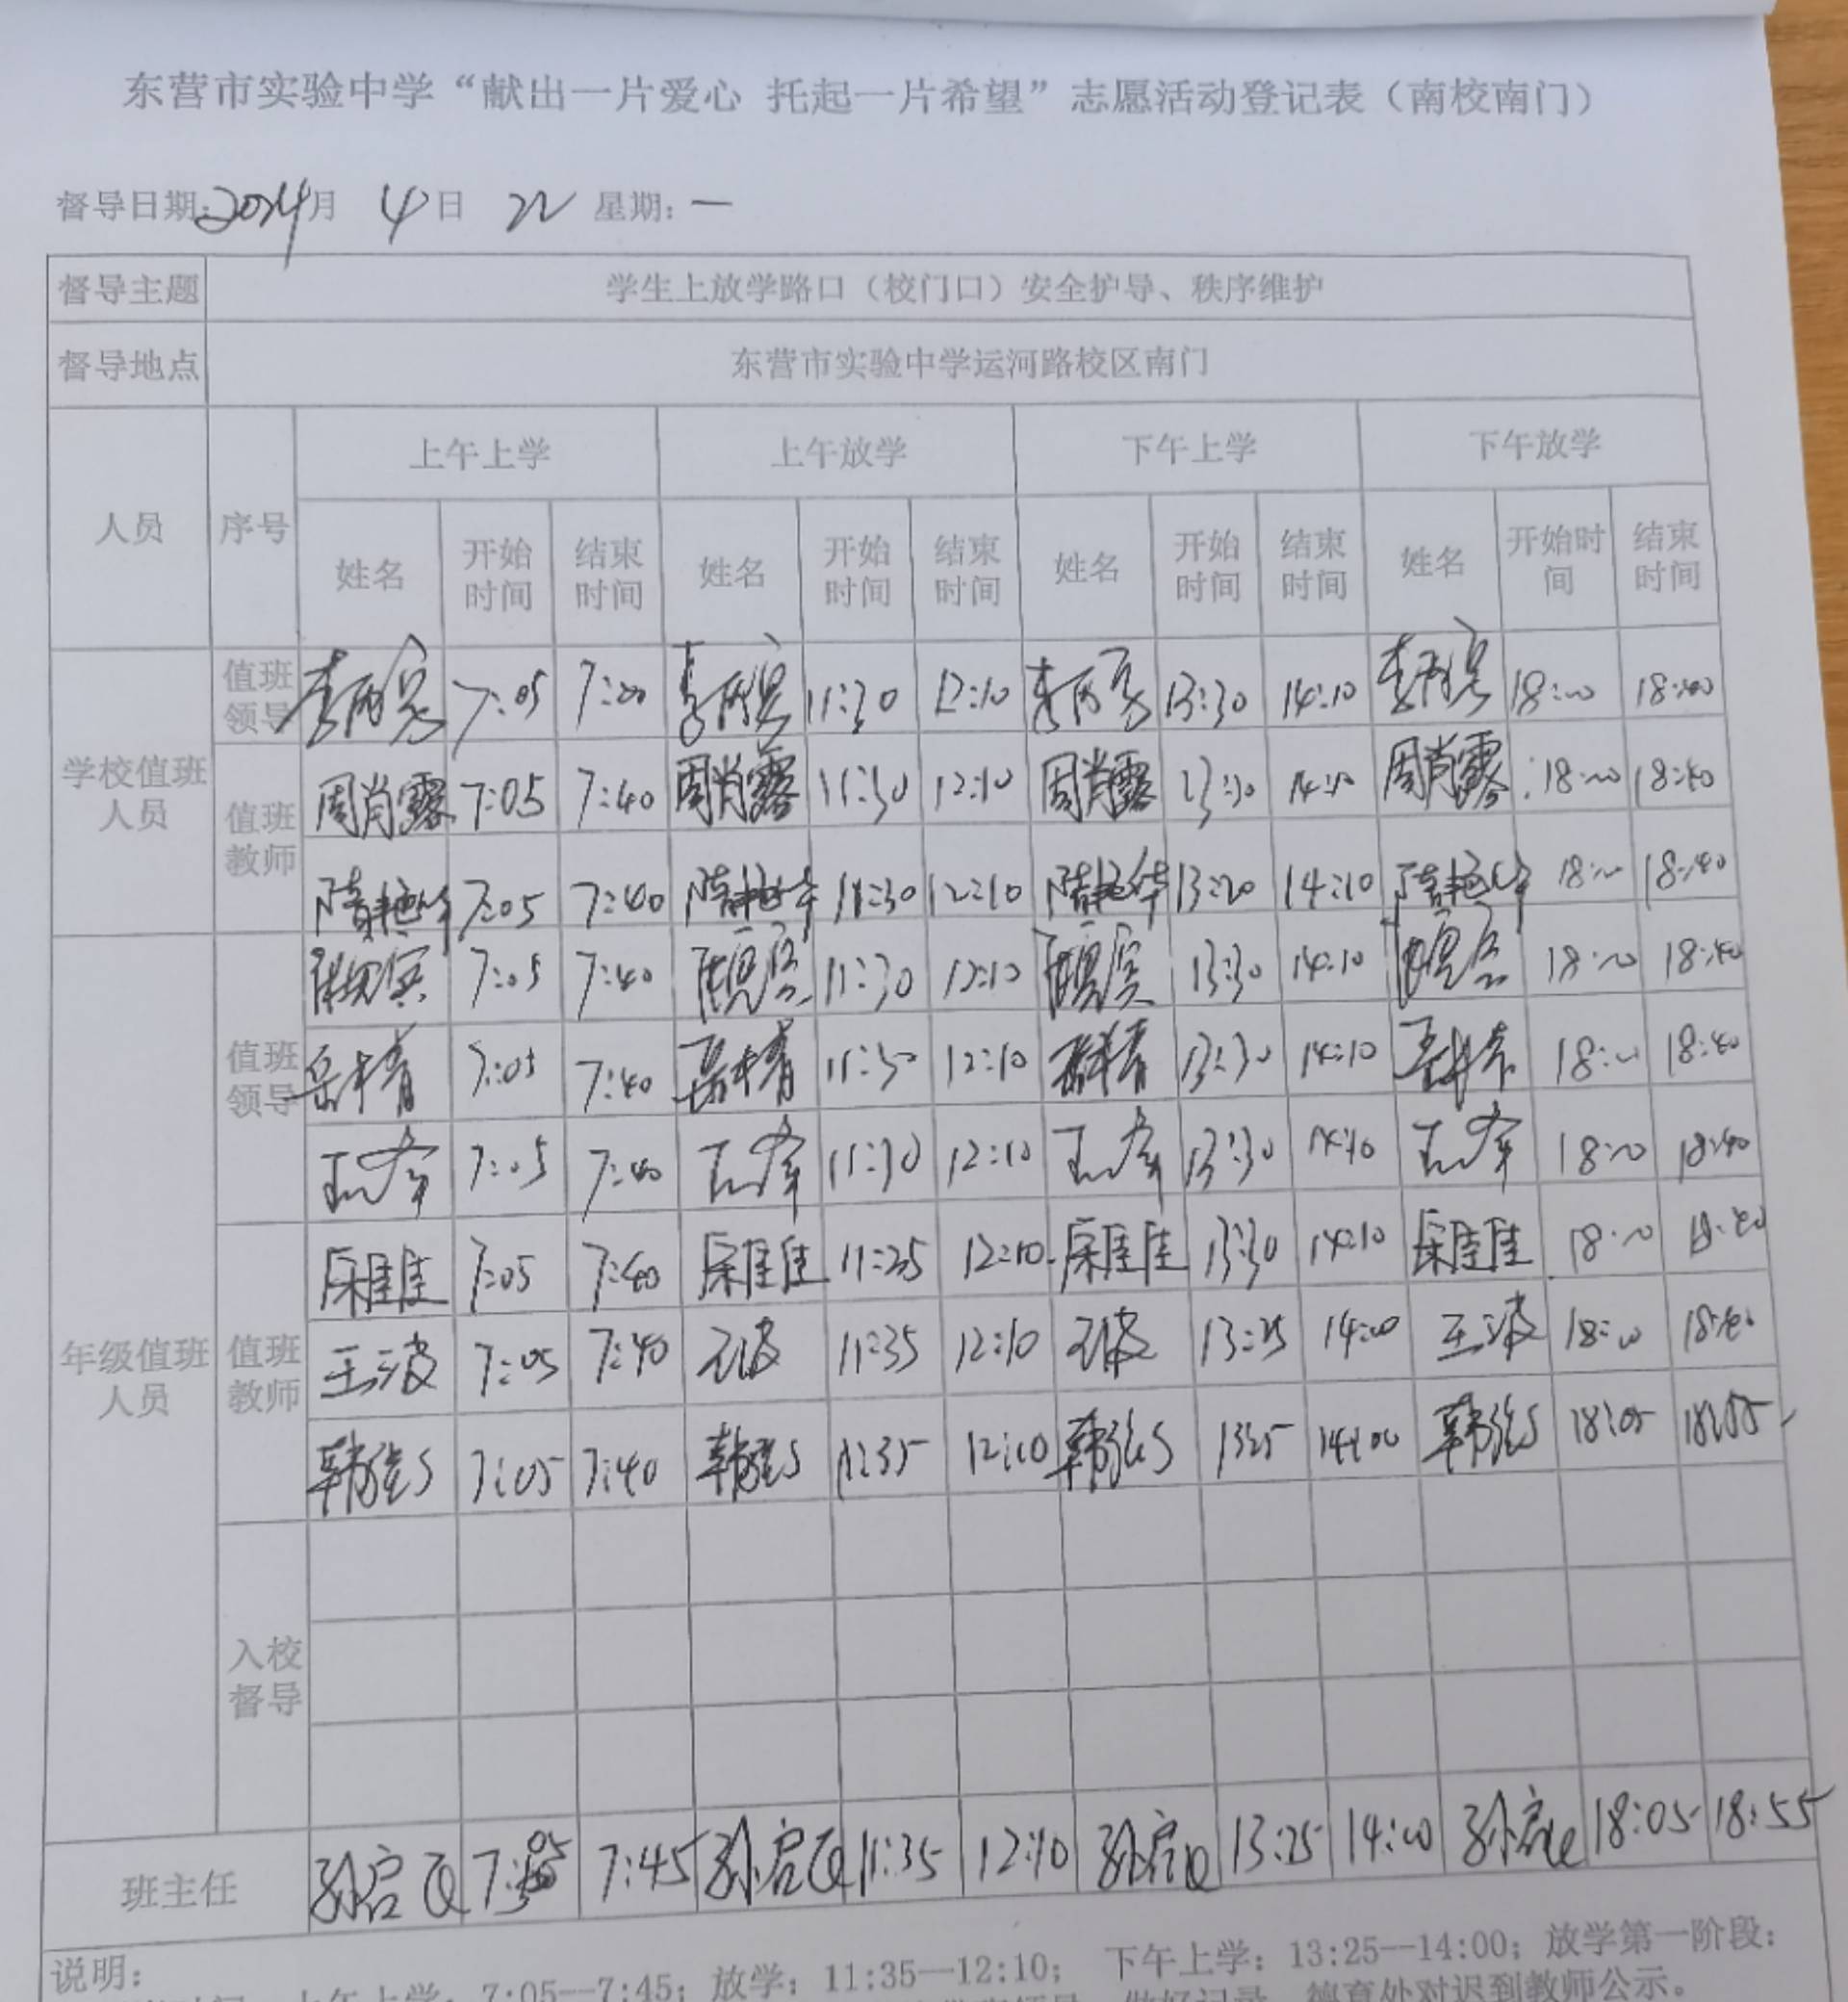 东营市实验中学“献出一片爱心 托起一片希望”志愿活动登记表（南校南门）
督导日期:2024月 4日 22 星期: 一
督导主题 学生上放学路口（校门口）安全护导、秩序维护
督导地点 东营市实验中学运河路校区南门
人员 序号 上午上学 上午放学 下午上学 下午放学
姓名 开始时间 结束时间 姓名 开始时间 结束时间 姓名 开始时间 结束时间 姓名 开始时间 结束时间
学校值班人员 值班领导 7:05 11:30 12:10 13:30 14:10
值班教师 周肖露 7:05 7:40 周肖露 11:30 12:10 周肖露 13:30 14:10 周肖露 18:00 18:40
隋艳华 7:05 7:40 隋艳华 11:30 12:10 隋艳华 13:20 14:10 隋艳华 18:00 18:40
年级值班人员 值班领导 7:05 7:40 11:30 12:10 13:30 14:10 18:00 18:40
7:05 7:40 11:30 12:10 13:30 14:10 18:00 18:40
7:05 7:40 11:30 12:10 13:30 14:10 18:00 18:40
值班教师 7:05 7:40 11:35 12:10 13:30 14:10 18:00 18:40
王波 7:05 7:40 王波 11:35 12:10 王波 13:25 14:00 王波 18:00 18:40
7:05 7:40 11:35 12:10 1325 14:00 18:05 18:55
入校督导
班主任 7:05 7:45 11:35 12:10 13:25 14:00 18:05 18:55
说明:
上午上学: 7:05—7:45; 放学; 11:35—12:10; 下午上学: 13:25—14:00; 放学第一阶段:
做好记录 德育处对迟到教师公示。